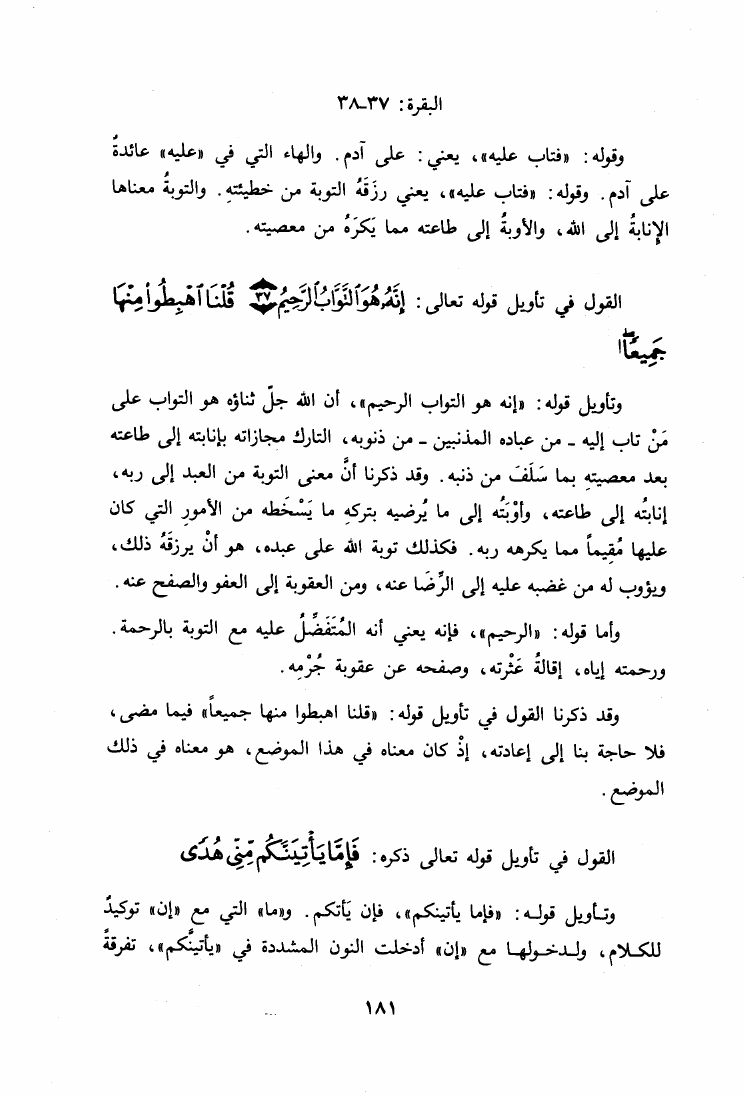 البقرة: ٣٧ـ٣٨
وقوله: «فتاب عليه»، يعني: على آدم. والهاء التي في «عليه» عائدةٌ
على آدم. وقوله: «فتاب عليه»، يعني رزَقَهُ التوبة من خطيئتهِ. والتوبةُ معناها
الإنابةُ إلى الله، والأوبةُ إلى طاعته مما يَكرَهُ من معصيته.
القول في تأويل قوله تعالى: إِنَّهُۥ هُوَ ٱلتَّوَّابُ ٱلرَّحِيمُ ٣٧ قُلْنَا ٱهْبِطُوا۟ مِنْهَا
جَمِيعًا ۖ
وتأويل قوله: «إنه هو التواب الرحيم»، أن الله جلّ ثناؤه هو التواب على
مَنْ تاب إليه ـ من عباده المذنبين ـ من ذنوبه، التارك مجازاته بإنابته إلى طاعته
بعد معصيتهِ بما سَلَفَ من ذنبه. وقد ذكرنا أنَّ معنى التوبة من العبد إلى ربه،
إنابتُه إلى طاعته، وأوْبَتُه إلى ما يُرضيه بتركهِ ما يَسْخَطه من الأمورِ التي كان
عليها مُقِيماً مما يكرهه ربه. فكذلك توبة الله على عبده، هو أنْ يرزقَهُ ذلك،
ويؤوب له من غضبه عليه إلى الرِّضَا عنه، ومن العقوبة إلى العفو والصفح عنه.
وأما قوله: «الرحيم»، فإنه يعني أنه المُتَفَضِّلُ عليه مع التوبة بالرحمة.
ورحمته إياه، إقالةُ عَثْرته، وصفحه عن عقوبة جُرْمِه.
وقد ذكرنا القول في تأويل قوله: «قلنا اهبطوا منها جميعاً» فيما مضى،
فلا حاجة بنا إلى إعادته، إذْ كان معناه في هذا الموضع، هو معناه في ذلك
الموضع.
القول في تأويل قوله تعالى ذكره: فَإِمَّا يَأْتِيَنَّكُم مِّنِّى هُدًى
وتـأويل قولـه: «فإما يأتينكم»، فإن يَأتكم. و«ما» التي مع «إن» توكيدٌ
للكـلام، ولـدخـولهـا مع «إن» أدخلت النون المشددة في «يأتينَّكم»، تفرقةً
١٨١